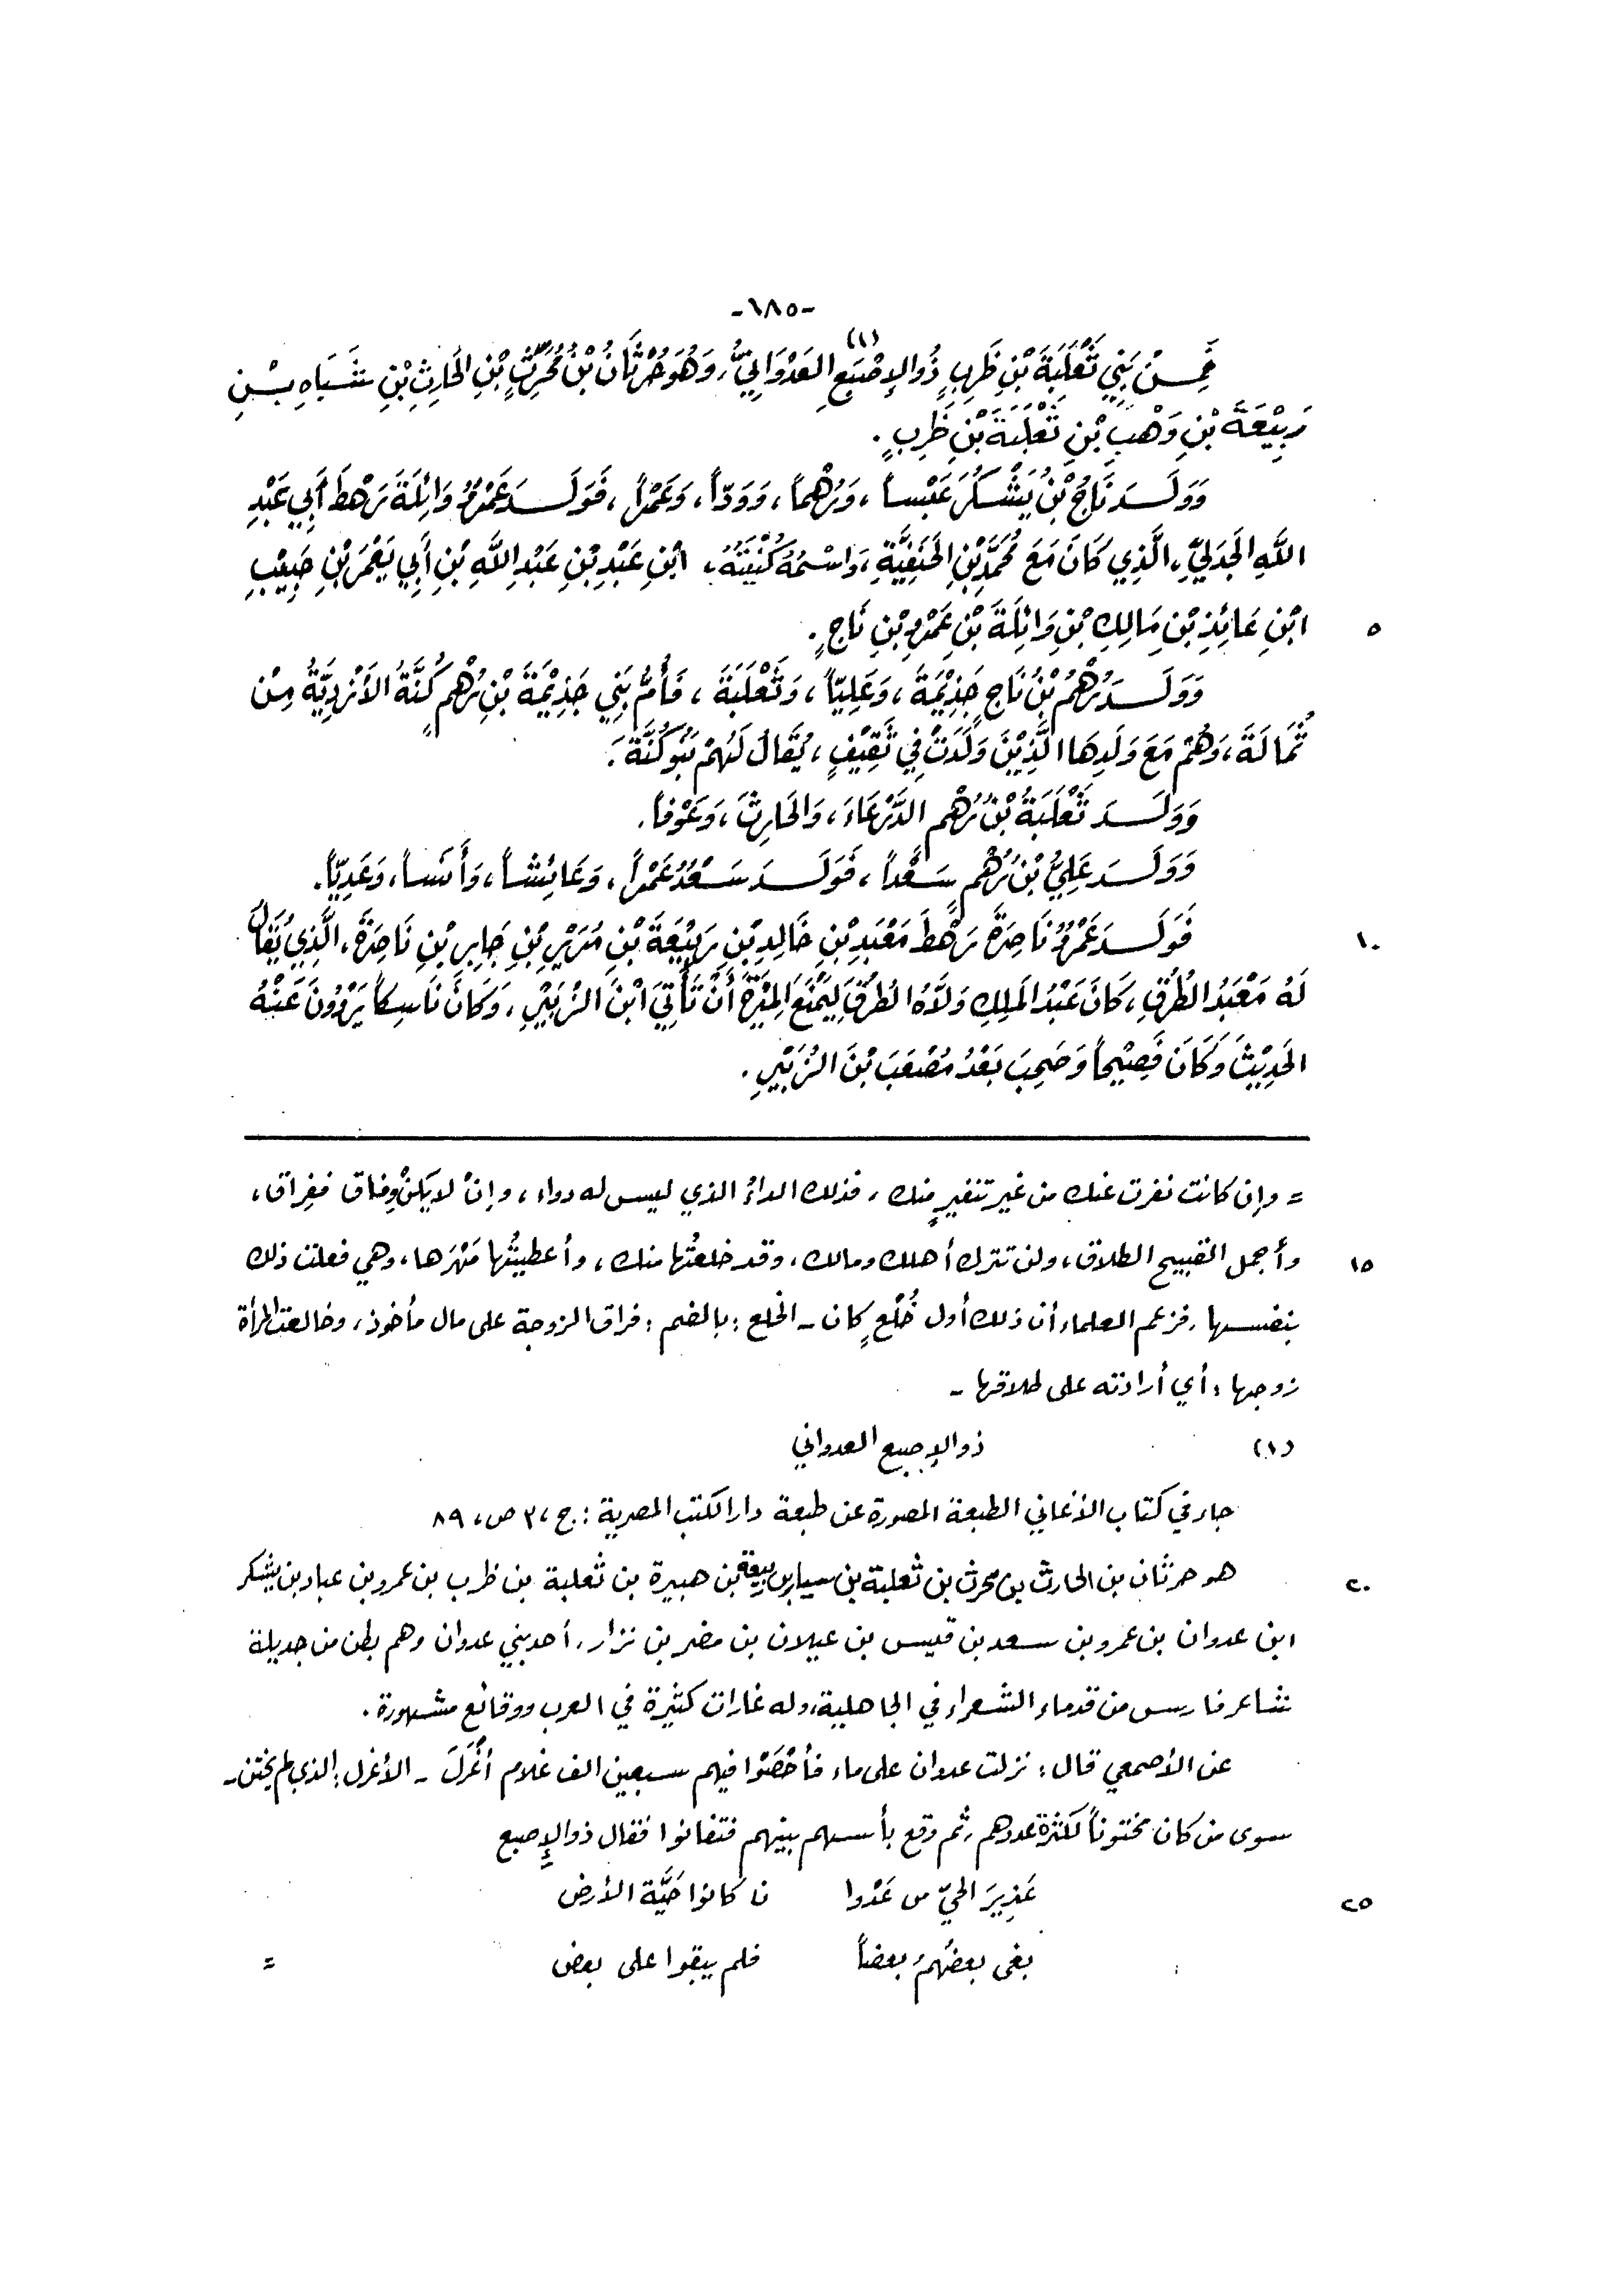 -٦٨٥-
فَمِنْ بَنِي ثَعْلَبَةَ بْنِ ظَرِبٍ ذُو الإِصْبَعِ العَدْوَانِيُّ (١)، وَهُوَ حُرْثَانُ بْنُ مُحَرِّثِ بْنِ الحَارِثِ بْنِ شَبَاهِ بْنِ
رَبِيْعَةَ بْنِ وَهْبِ بْنِ ثَعْلَبَةَ بْنِ ظَرِبٍ.
وَوَلَدَ نَاجُ بْنُ يَشْكُرَ عَبْساً، وَرُهْماً، وَوَدّاً، وَعَمْراً، فَوَلَدَ عَمْرٌو وَائِلَةَ رَهْطَ أَبِي عَبْدِ
اللَّهِ الجَدَلِيِّ، الَّذِي كَانَ مَعَ مُحَمَّدِ بْنِ الحَنَفِيَّةِ، وَاسْمُهُ كُنْيَتُهُ، ابْنِ عَبْدِ بْنِ عَبْدِ اللَّهِ بْنِ أَبِي يَعْمَرَ بْنِ حَبِيْبِ
٥ ابْنِ عَائِذِ بْنِ مَالِكِ بْنِ وَائِلَةَ بْنِ عَمْرِو بْنِ نَاجٍ.
وَوَلَدَ رُهْمُ بْنُ نَاجٍ جَذِيْمَةَ، وَعَلِيّاً، وَثَعْلَبَةَ، فَأُمُّ بَنِي جَذِيْمَةَ بْنِ رُهْمٍ كُنَّةُ الأَزْدِيَّةُ مِنْ
ثُمَالَةَ، وَهُمْ مَعَ وَلَدِهَا الَّذِيْنَ وَلَدَتْ فِي ثَقِيْفٍ، يُقَالُ لَهُمْ بَنُو كُنَّةَ.
وَوَلَدَ ثَعْلَبَةُ بْنُ رُهْمٍ الدَّرْعَاءَ، وَالحَارِثَ، وَعَوْفاً.
وَوَلَدَ عَلِيُّ بْنُ رُهْمٍ سَعْداً، فَوَلَدَ سَعْدُ عَمْراً، وَعَائِشاً، وَأَسَداً، وَعَدِيّاً.
١٠ فَوَلَدَ عَمْرٌو نَاصِرَةَ رَهْطَ مَعْبَدِ بْنِ خَالِدِ بْنِ رَبِيْعَةَ بْنِ مُرَيْرِ بْنِ جَابِرِ بْنِ نَاصِرَةَ، الَّذِي يُقَالُ
لَهُ مَعْبَدُ الطُّرُقِ، كَانَ عَبْدُ المَلِكِ وَلَّاهُ الطُّرُقَ لِيَمْنَعَ المِيْرَةَ أَنْ تَأْتِيَ ابْنَ الزُّبَيْرِ، وَكَانَ نَاسِكاً يَرْوُونَ عَنْهُ
الحَدِيْثَ وَكَانَ فَصِيْحاً وَصَحِبَ بَعْدُ مُصْعَبَ بْنَ الزُّبَيْرِ.
= وإن كانت نفرت عنك من غير تنفيرٍ منك، فذلك الداءُ الذي ليس له دواء، وإنْ لا يَكنْ وِفاق ففِراق،
١٥ وأجمل القبيح الطلاق، ولن تترك أهلك ومالك، وقد خلعتُها منك، وأعطيتُها مَهْرَها، وهي فعلت ذلك
بنفسها، فزعم العلماء أن ذلك أول خُلْعٍ كان - الخلع: بالضم: فراق الزوجة على مال مأخوذ، وخالعت المرأة
زوجها: أي أرادته على طلاقها -
(١) ذو الإصبع العدواني
جاء في كتاب الأغاني الطبعة المصورة عن طبعة دار الكتب المصرية: ج، ٣ ص، ٨٩
٢٠ هو حرثان بن الحارث بن محرث بن ثعلبة بن سيار بن ربيعة بن هبيرة بن ثعلبة بن ظرب بن عمرو بن عباد بن يشكر
ابن عدوان بن عمرو بن سعد بن قيس بن عيلان بن مضر بن نزار، أحد بني عدوان وهم بطن من جديلة
شاعر فارس من قدماء الشعراء في الجاهلية، وله غارات كثيرة في العرب ووقائع مشهورة.
عن الأصمعي قال: نزلت عدوان على ماء فأحْصَوْا فيهم سبعين الف غلام أَغْرَلَ - الأغرل: الذي لم يختن -
سوى من كان مختوناً لكثرة عددهم، ثم وقع بأسهم بينهم فتفانوا فقال ذو الإِصبع
٢٥ عَذِيرَ الحيّ من عَدْوا ن كانوا حَيَّةَ الأرض
بغى بعضُهُمُ بعضاً فلم يبقوا على بعض =